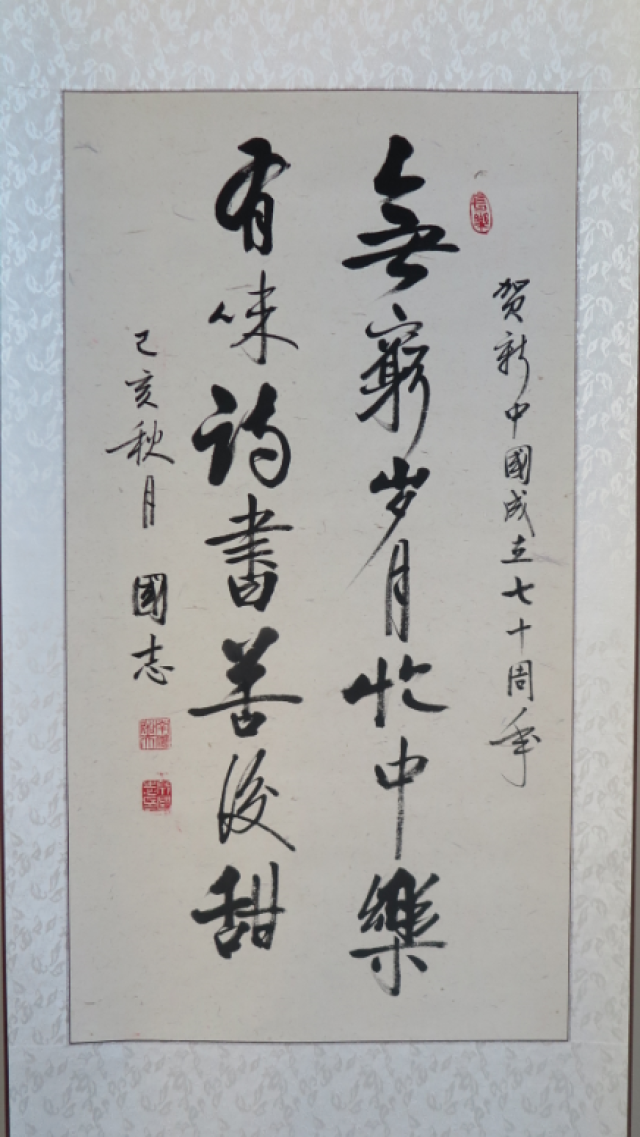 贺新中國成立七十周年
無窮岁月忙中樂
有味詩書苦後甜
己亥秋月 國志